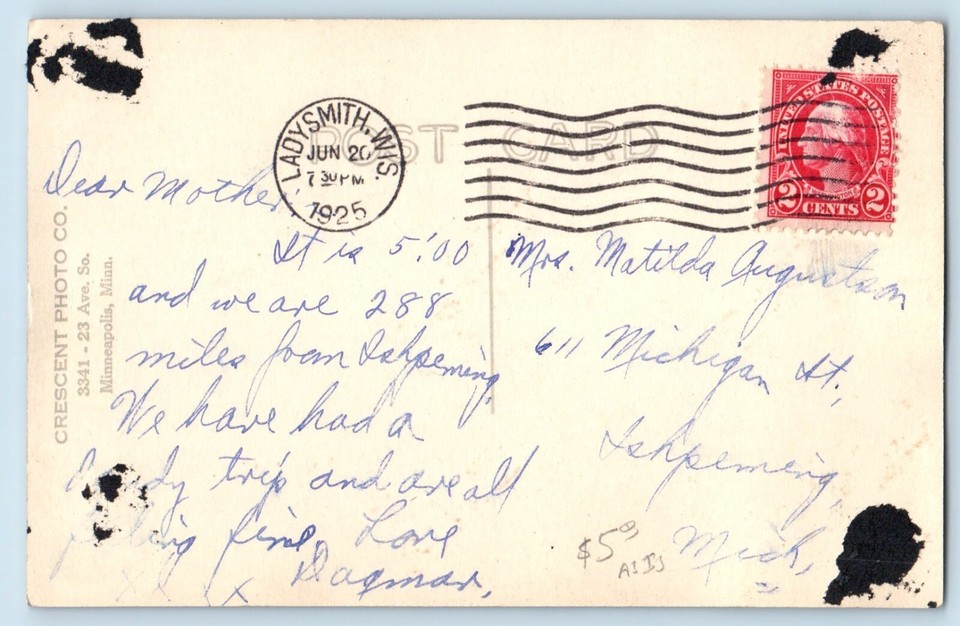 POST CARD
LADYSMITH, WIS.
JUN 20
7 30 PM
1925
UNITED STATES POSTAGE
2 CENTS 2
Dear Mother,
It is 5:00
and we are 288
miles from Ishpeming,
We have had a
trip and are all
fine, Love
Dagmar,
x x x
Mrs. Matilda Augustson
611 Michigan St.,
Ishpeming,
Mich,
$5.00
AS IS
CRESCENT PHOTO CO.
3341 - 23 Ave. So.
Minneapolis, Minn.